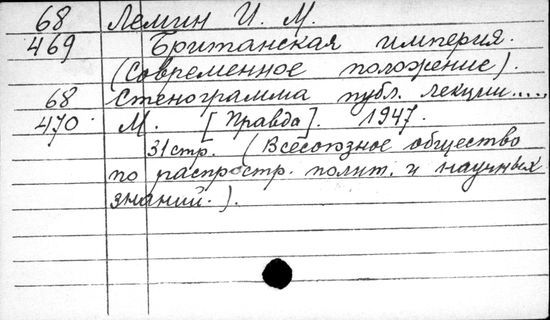 68 Лемин И. М.
469 Британская империя.
(Современное положение).
68 Стенограмма публ. лекции.....
470 М. [Правда]. 1947.
31стр. (Всесоюзное общество
по распростр. полит. и научных
знаний.).